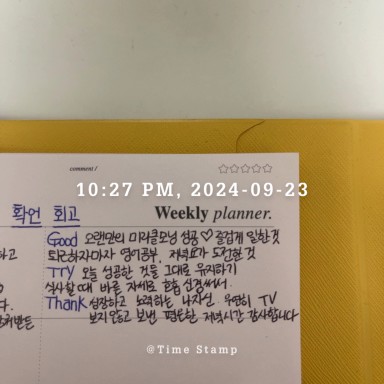 comment /
10:27 PM, 2024-09-23
확언 회고
Weekly planner.
Good 오랜만의 미라클모닝 성공♡ 즐겁게 일한 것
퇴근하자마자 영어공부, 저녁요가 도전한 것
Try 오늘 성공한 것들 그대로 유지하기
식사할 때 바른 자세로 호흡 신경써서.
Thank 성장하고 노력하는 나자신 우연히 TV
보지 않고 보낸 평온한 저녁시간 감사합니다
@Time Stamp